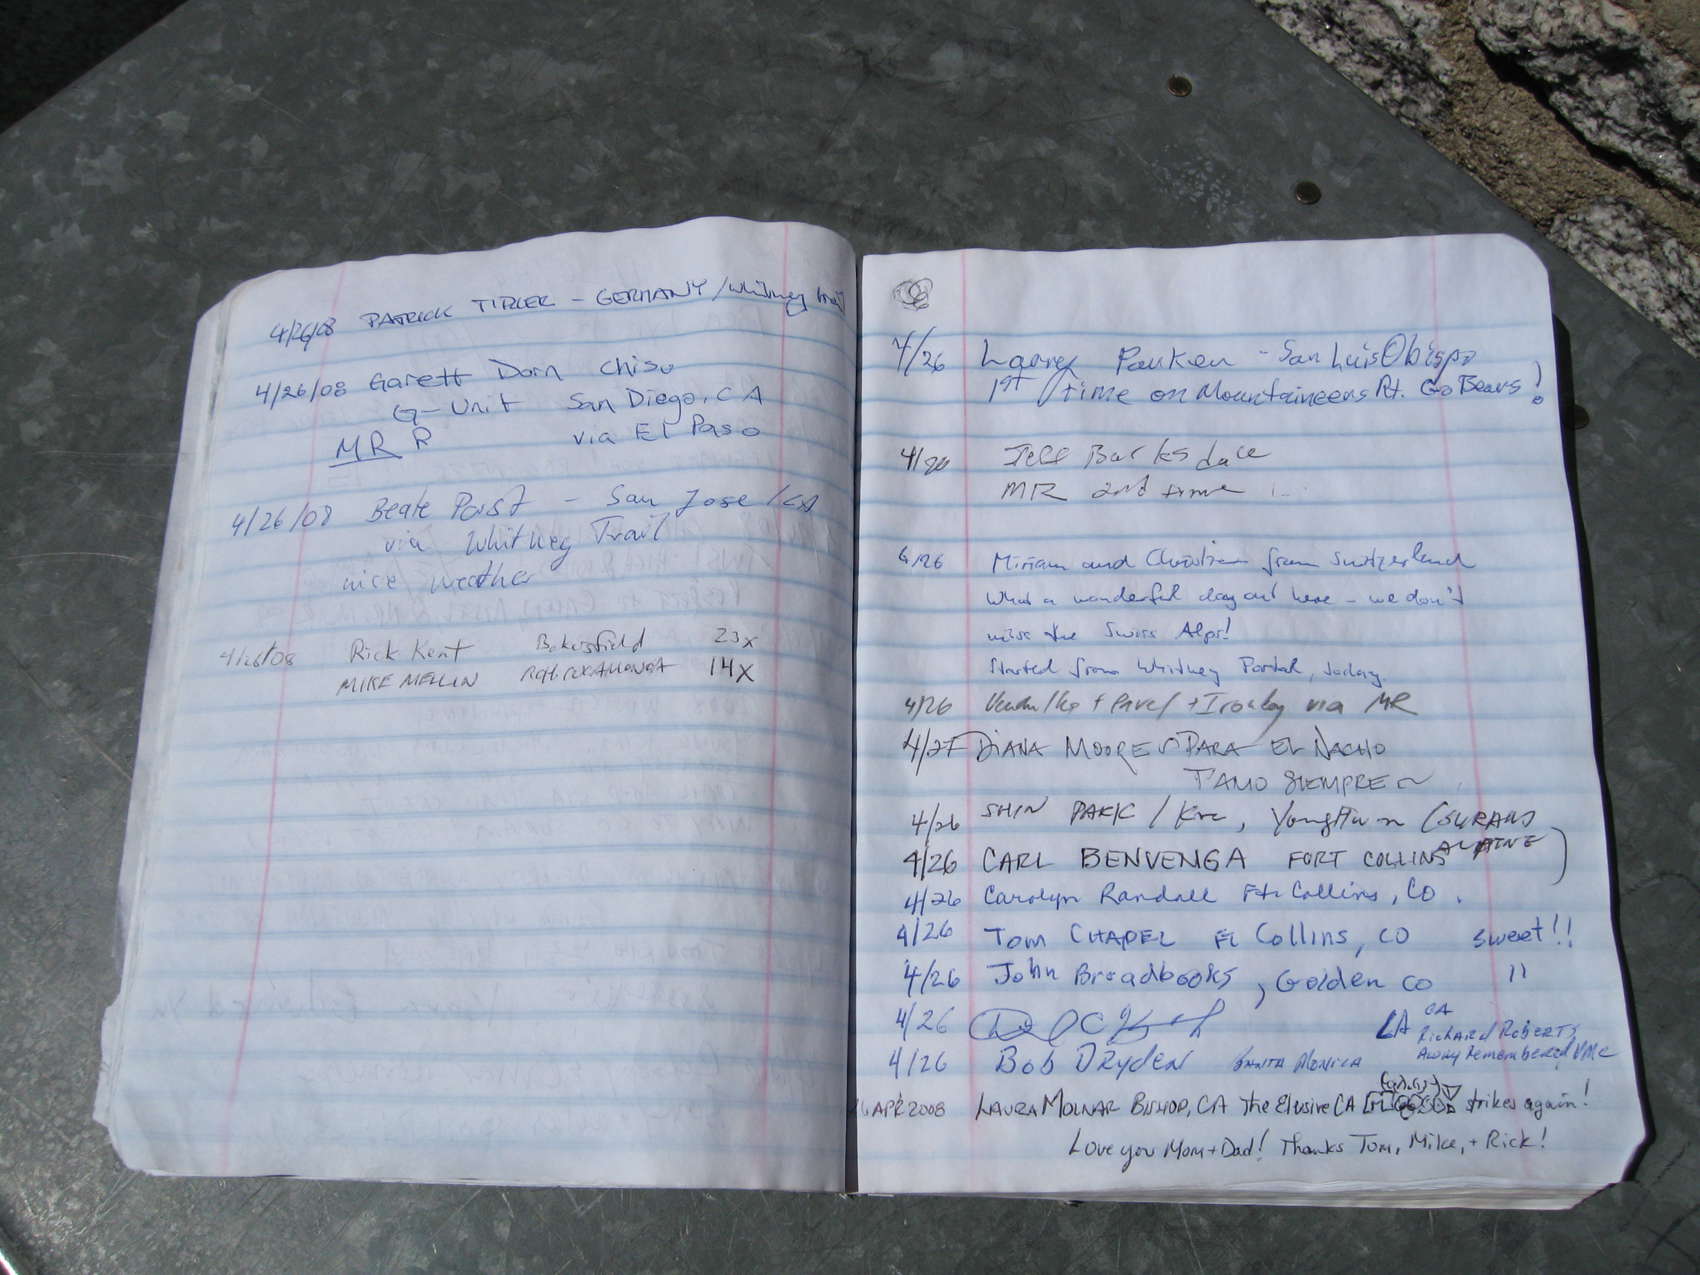 4/26/08 PATRICK TIRLER - GERMANY / Whitney trail
4/26/08 Garett Dorn Chiso
G-Unit San Diego, CA
MR R via El Paso
4/26/08 Beate Porst - San Jose / CA
via Whitney Trail
nice weather
4/26/08 Rick Kent Bakersfield 23x
MIKE MELLIN 14X
4/26 Larry San Luis Obispo
1st time on Mountaineers Rt. Go Bears!
4/26 Jeff Barksdale
MR 2nd time
4/26 Miriam and Christian from Switzerland
What a wonderful day out here - we don't
miss the Swiss Alps!
Started from Whitney Portal, today.
4/26 + Pavel + via MR
4/27 DIANA MOORE PARA EL NACHO
TAMO SIEMPRE ~
4/26 SHIN PARK /
4/26 CARL BENVENGA FORT COLLINS
4/26 Carolyn Randall Ft. Collins, CO.
4/26 TOM CHAPEL Ft Collins, CO sweet!!
4/26 John Broadbooks, Golden CO "
4/26 LA CA
RICHARD ROBERTS
Away Remembered
4/26 BOB DRYDEN SANTA MONICA
APR 2008 LAURA MOLNAR BISHOP, CA The Elusive CA strikes again!
Love you Mom + Dad! Thanks Tom, Mike, + Rick!